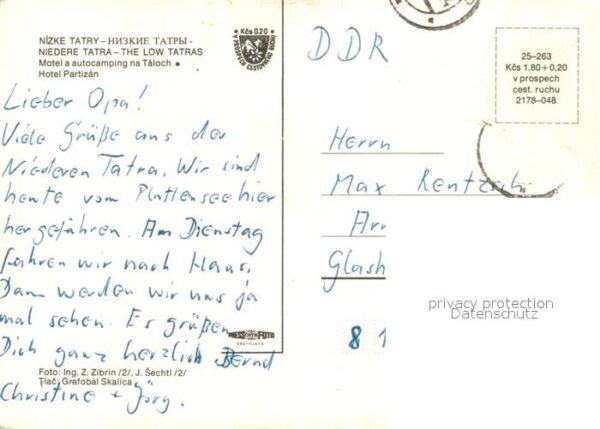 NÍZKE TATRY–НИЗКИЕ ТАТРЫ-
NIEDERE TATRA–THE LOW TATRAS
Motel a autocamping na Táloch •
Hotel Partizán
Kčs 0,20
V PROSPECH CESTOVNÉHO RUCHU
Lieber Opa!
Viele Grüße aus der
Niederen Tatra. Wir sind
heute vom Plattensee hier
hergefahren. Am Dienstag
fahren wir nach Haus.
Dann werden wir uns ja
mal sehen. Es grüßen
Dich ganz herzlich Bernd
Christine + Jörg.
PRESSFOTO
BRATISLAVA
Foto: Ing. Z. Zibrin /2/, J. Šechtl /2/
Tlač: Grafobal Skalica
DDR
25–263
Kčs 1,80+0,20
v prospech
cest. ruchu
2178–048
Herrn
Max Rentzsch
Glash
privacy protection
Datenschutz
8